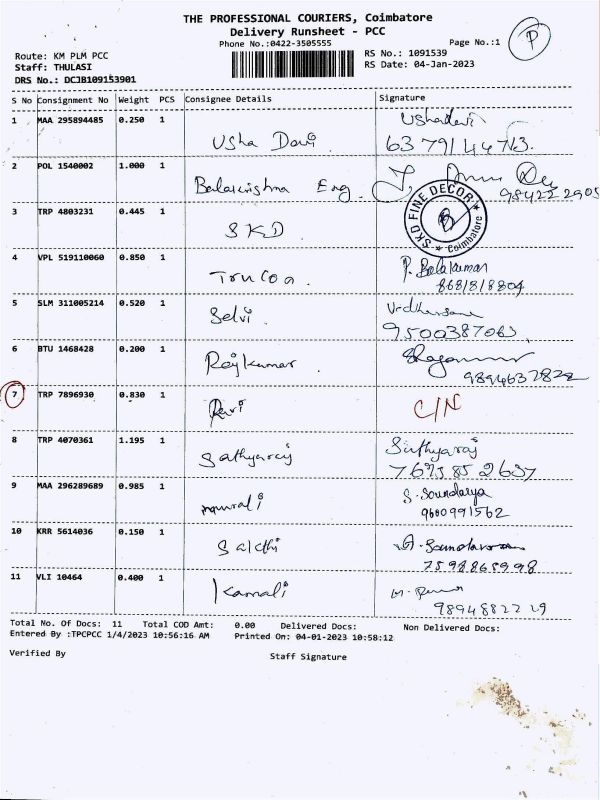 THE PROFESSIONAL COURIERS, Coimbatore
Delivery Runsheet - PCC
Phone No.:0422-3505555
Page No.:1
P
Route: KM PLM PCC
Staff: THULASI
DRS No.: DCJB109153901
RS No.: 1091539
RS Date: 04-Jan-2023
S No Consignment No Weight PCS Consignee Details Signature
1 MAA 295894485 0.250 1 Usha Devi Ushadevi
6379144713.
2 POL 1540002 1.000 1 Balakrishna Eng.
9842222905
3 TRP 4803231 0.445 1 SKD
SKD FINE DECOR * Coimbatore *
4 VPL 519110060 0.850 1 P. Balakumar
8681818804
5 SLM 311005214 0.520 1 Selvi
9500387063
6 BTU 1468428 0.200 1 Rajkumar
9894637828
7 TRP 7896930 0.830 1 Ravi C/N
8 TRP 4070361 1.195 1 Sathyaraj Sathyaraj
7695852637
9 MAA 296289689 0.985 1 murali S. Soundarya
9600991562
10 KRR 5614036 0.150 1 Sakthi
7598868998
11 VLI 10464 0.400 1 Kamali
9894882219
Total No. Of Docs: 11 Total COD Amt: 0.00 Delivered Docs: Non Delivered Docs:
Entered By :TPCPCC 1/4/2023 10:56:16 AM Printed On: 04-01-2023 10:58:12
Verified By Staff Signature